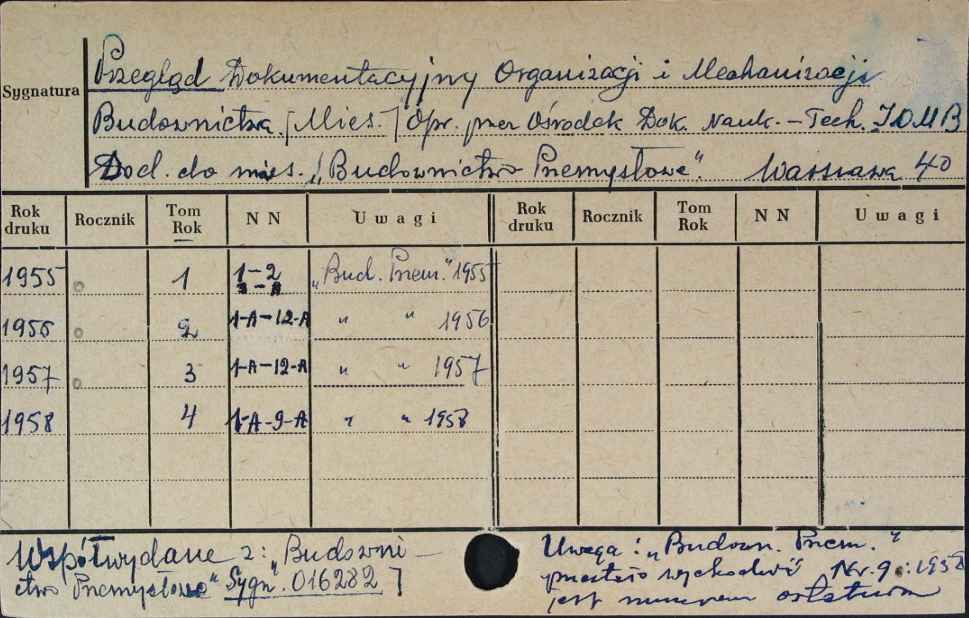 Sygnatura
Przegląd Dokumentacyjny Organizacji i Mechanizacji
Budownictwa. [Mies.] Opr. przez Ośrodek Dok. Nauk. – Tech. IOMB
Dod. do mies. „Budownictwo Przemysłowe". Warszawa 40
Rok druku Rocznik Tom Rok N N Uwagi Rok druku Rocznik Tom Rok N N Uwagi
1955 1 1–2 „Bud. Przem." 1955
3 – A
1956 2 1-A–12-A " " 1956
1957 3 1-A–12-A " " 1957
1958 4 1-A-9-A " " 1958
Współwydane z: „Budowni–
ctwo Przemysłowe" Sygn. 016282]
Uwaga: „Budown. Przem."
przestało wychodzić Nr. 9 : 1958
jest numerem ostatnim